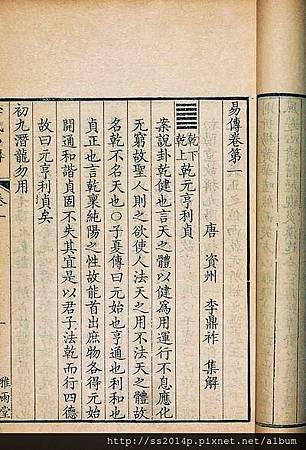 易傳卷第一
唐 資州 李鼎祚 集解
䷀ 乾下乾上 乾元亨利貞
案說卦乾健也言天之體以健為用運行不息應化
无窮故聖人則之欲使人法天之用不法天之體故
名乾不名天也〇子夏傳曰元始也亨通也利和也
貞正也言乾稟純陽之性故能首出庶物各得元始
開通和諧貞固不失其宜是以君子法乾而行四德
故曰元亨利貞矣
初九潛龍勿用
雅雨堂
http://ss2014p.pixnet.net/album